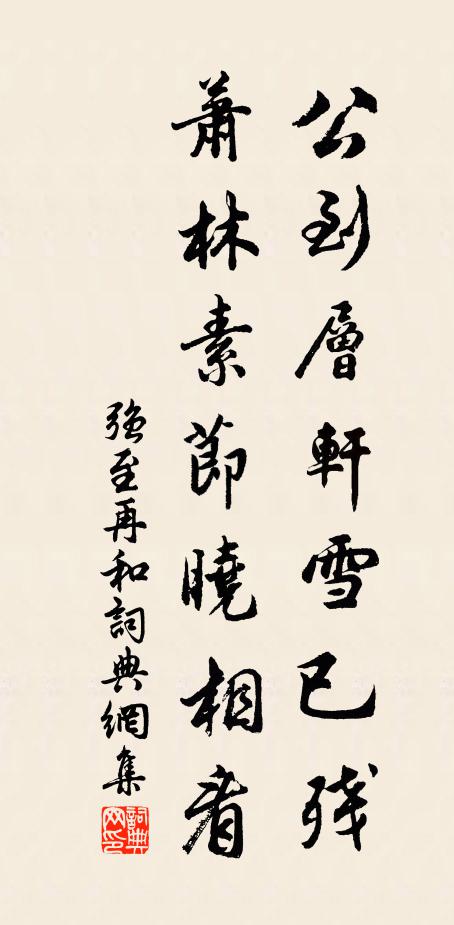 公到層軒雪已残
蕭林素節曉相看
強至再和詞典網集
詞典网印